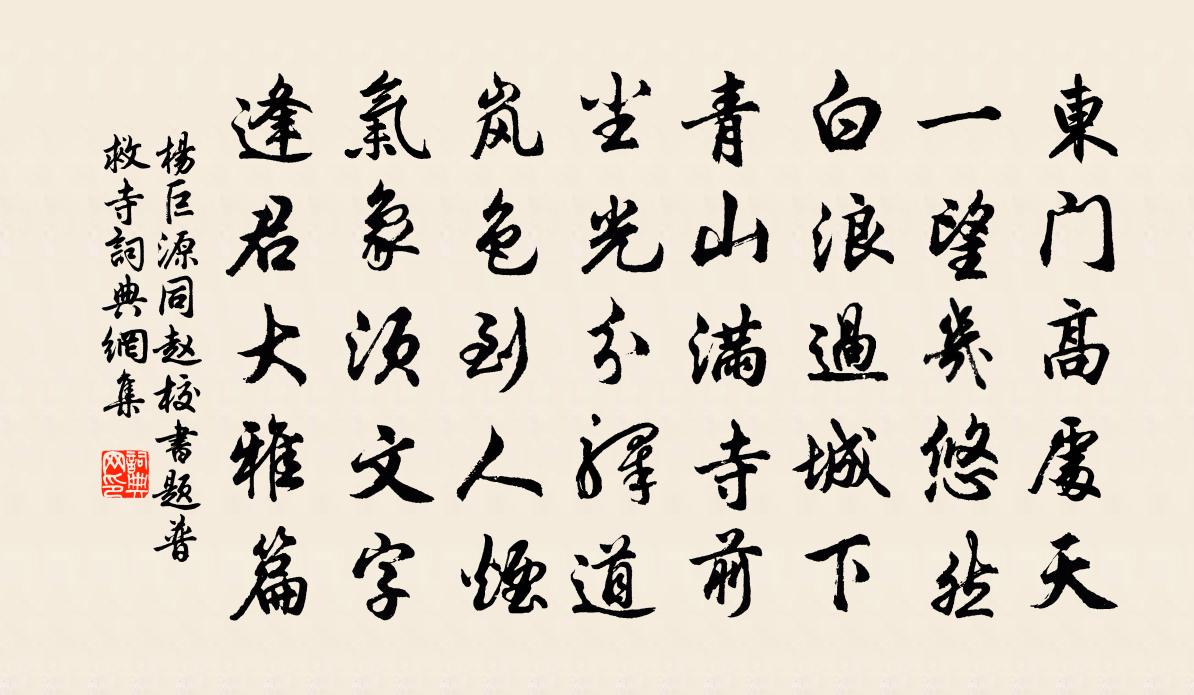 東门高處天
一望幾悠然
白浪過城下
青山滿寺前
尘光分驛道
岚色到人煙
氣象须文字
逢君大雅篇
楊巨源同赵校書题普
救寺詞典網集
詞典
网印